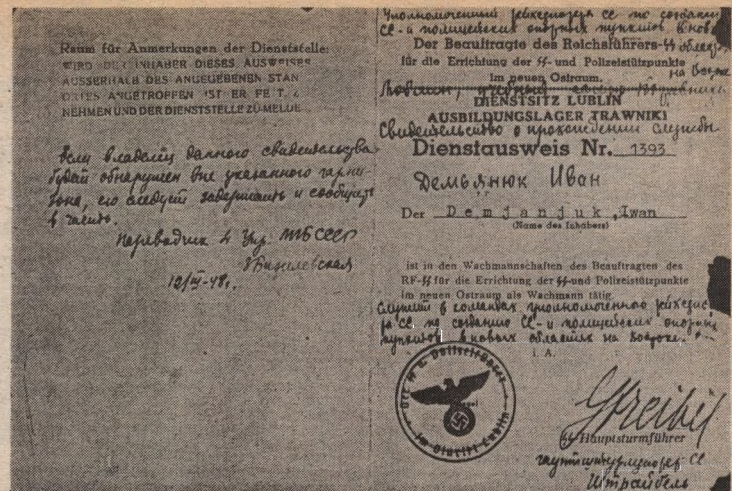 Raum für Anmerkungen der Dienststelle:
WIRD DER INHABER DIESES AUSWEISES
AUSSERHALB DES ANGEGEBENEN STAN
ORTES ANGETROFFEN IST ER FEST
NEHMEN UND DER DIENSTSTELLE ZU MELDE
Если владелец данного свидетельства
будет обнаружен вне указанного гарни-
зона, его следует задержать и сообщить
в часть.
Переводчик 4 Упр. МГБ СССР
12/III-48г.
Уполномоченный рейхсфюрера СС по созданию
СС-и полицейских опорных пунктов в нов
Der Beauftragte des Reichsführers-SS
областях
für die Errichtung der SS- und Polizeistützpunkte
на Востоке
im neuen Ostraum.
Люблин, учебный
DIENSTSITZ LUBLIN
AUSBILDUNGSLAGER TRAWNIKI
Свидетельство о прохождении службы
Dienstausweis Nr. 1393
Демьянюк Иван
Der Demjanjuk, Iwan
(Name des Inhabers)
ist in den Wachmannschaften des Beauftragten des
RF-SS für die Errichtung der SS-und Polizeistützpunkte
im neuen Ostraum als Wachmann tätig.
Служит в командах уполномоченного рейхсфюре
ра СС по созданию СС-и полицейских опорных
пунктов в новых областях на Востоке.
I. A.
Streibel
SS Hauptsturmführer
гауптштурмфюрер СС
Штрайбель